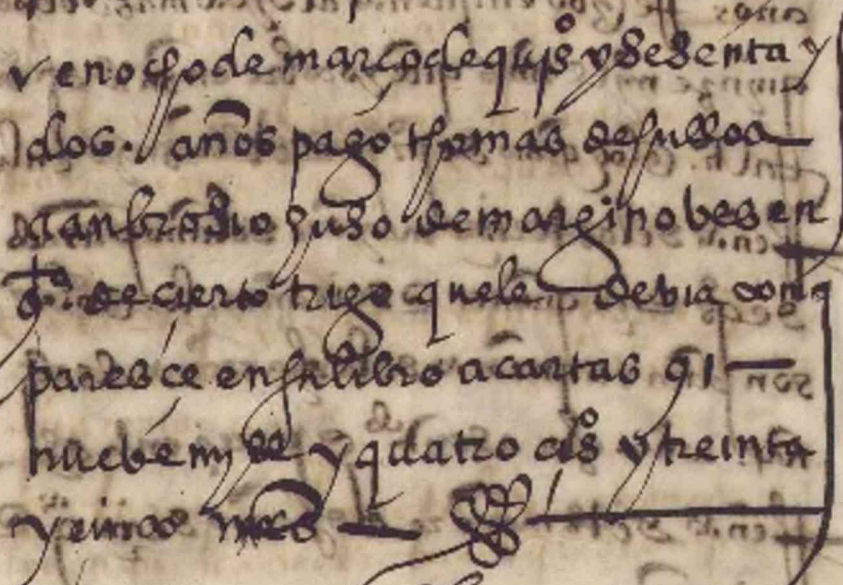 v en ocho de março de quis y sesenta y
dos. años pago thomas de sulloa
a anbrosio suso de marginobes en
de cierto trigo que le devia com
paresce en su libro a cartas 91
nuebe my y quatro cis y treinta
y cinco mrs